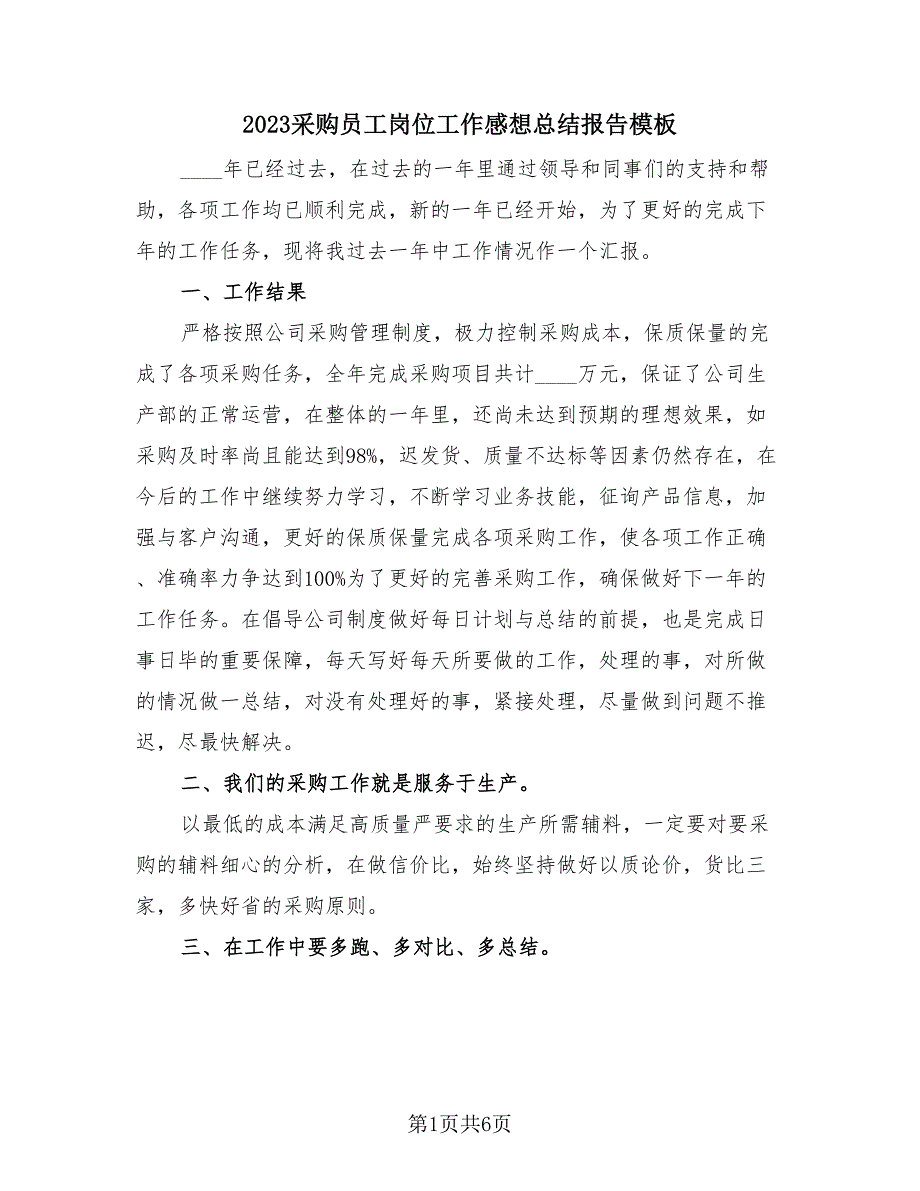 2023采购员工岗位工作感想总结报告模板
____年已经过去，在过去的一年里通过领导和同事们的支持和帮
助，各项工作均已顺利完成，新的一年已经开始，为了更好的完成下
年的工作任务，现将我过去一年中工作情况作一个汇报。
一、工作结果
严格按照公司采购管理制度，极力控制采购成本，保质保量的完
成了各项采购任务，全年完成采购项目共计____万元，保证了公司生
产部的正常运营，在整体的一年里，还尚未达到预期的理想效果，如
采购及时率尚且能达到98%，迟发货、质量不达标等因素仍然存在，在
今后的工作中继续努力学习，不断学习业务技能，征询产品信息，加
强与客户沟通，更好的保质保量完成各项采购工作，使各项工作正确
、准确率力争达到100%为了更好的完善采购工作，确保做好下一年的
工作任务。在倡导公司制度做好每日计划与总结的前提，也是完成日
事日毕的重要保障，每天写好每天所要做的工作，处理的事，对所做
的情况做一总结，对没有处理好的事，紧接处理，尽量做到问题不推
迟，尽最快解决。
二、我们的采购工作就是服务于生产。
以最低的成本满足高质量严要求的生产所需辅料，一定要对要采
购的辅料细心的分析，在做信价比，始终坚持做好以质论价，货比三
家，多快好省的采购原则。
三、在工作中要多跑、多对比、多总结。
第1页共6页